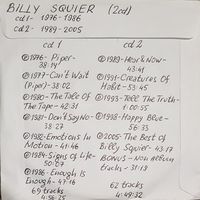 BILLY SQUIER (2cd)
cd1- 1976-1986
cd2- 1989-2005
cd 1
①1976- Piper-
38:19
②1977-Can't Wait
(Piper)-38:02
③1980-The Tale Of
The Tape-42:31
④1981-Don't Say No-
38:27
⑤1982-Emotions In
Motion-41:46
⑥1984-Signs Of Life-
50:07
⑦1986-Enough Is
Enough-47:16
69 tracks
4:56:25
cd 2
①1989-Hear & Now-
43:41
②1991-Creatures Of
Habit-53:45
③1993-Tell The Truth-
1:00:55
④1998-Happy Blue-
56:33
⑤2005-The Best Of
Billy Squier-43:17
BONUS-Non album
tracks-31:19
62 tracks
4:49:32